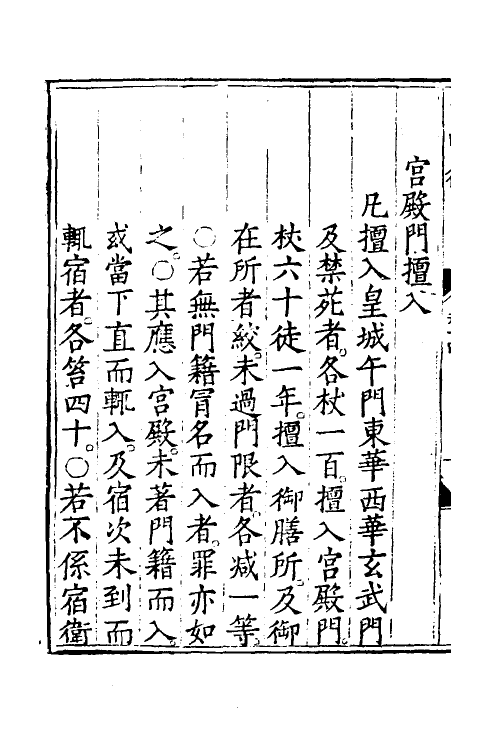 宮殿門擅入
凡擅入皇城午門東華西華玄武門
及禁苑者。各杖一百。擅入宮殿門。
杖六十徒一年。擅入御膳所。及御
在所者絞。未過門限者。各减一等。
○若無門籍冐名而入者。罪亦如
之。○其應入宮殿。未著門籍而入。
或當下直而輒入。及宿次未到而
輒宿者。各笞四十。○若不係宿衛